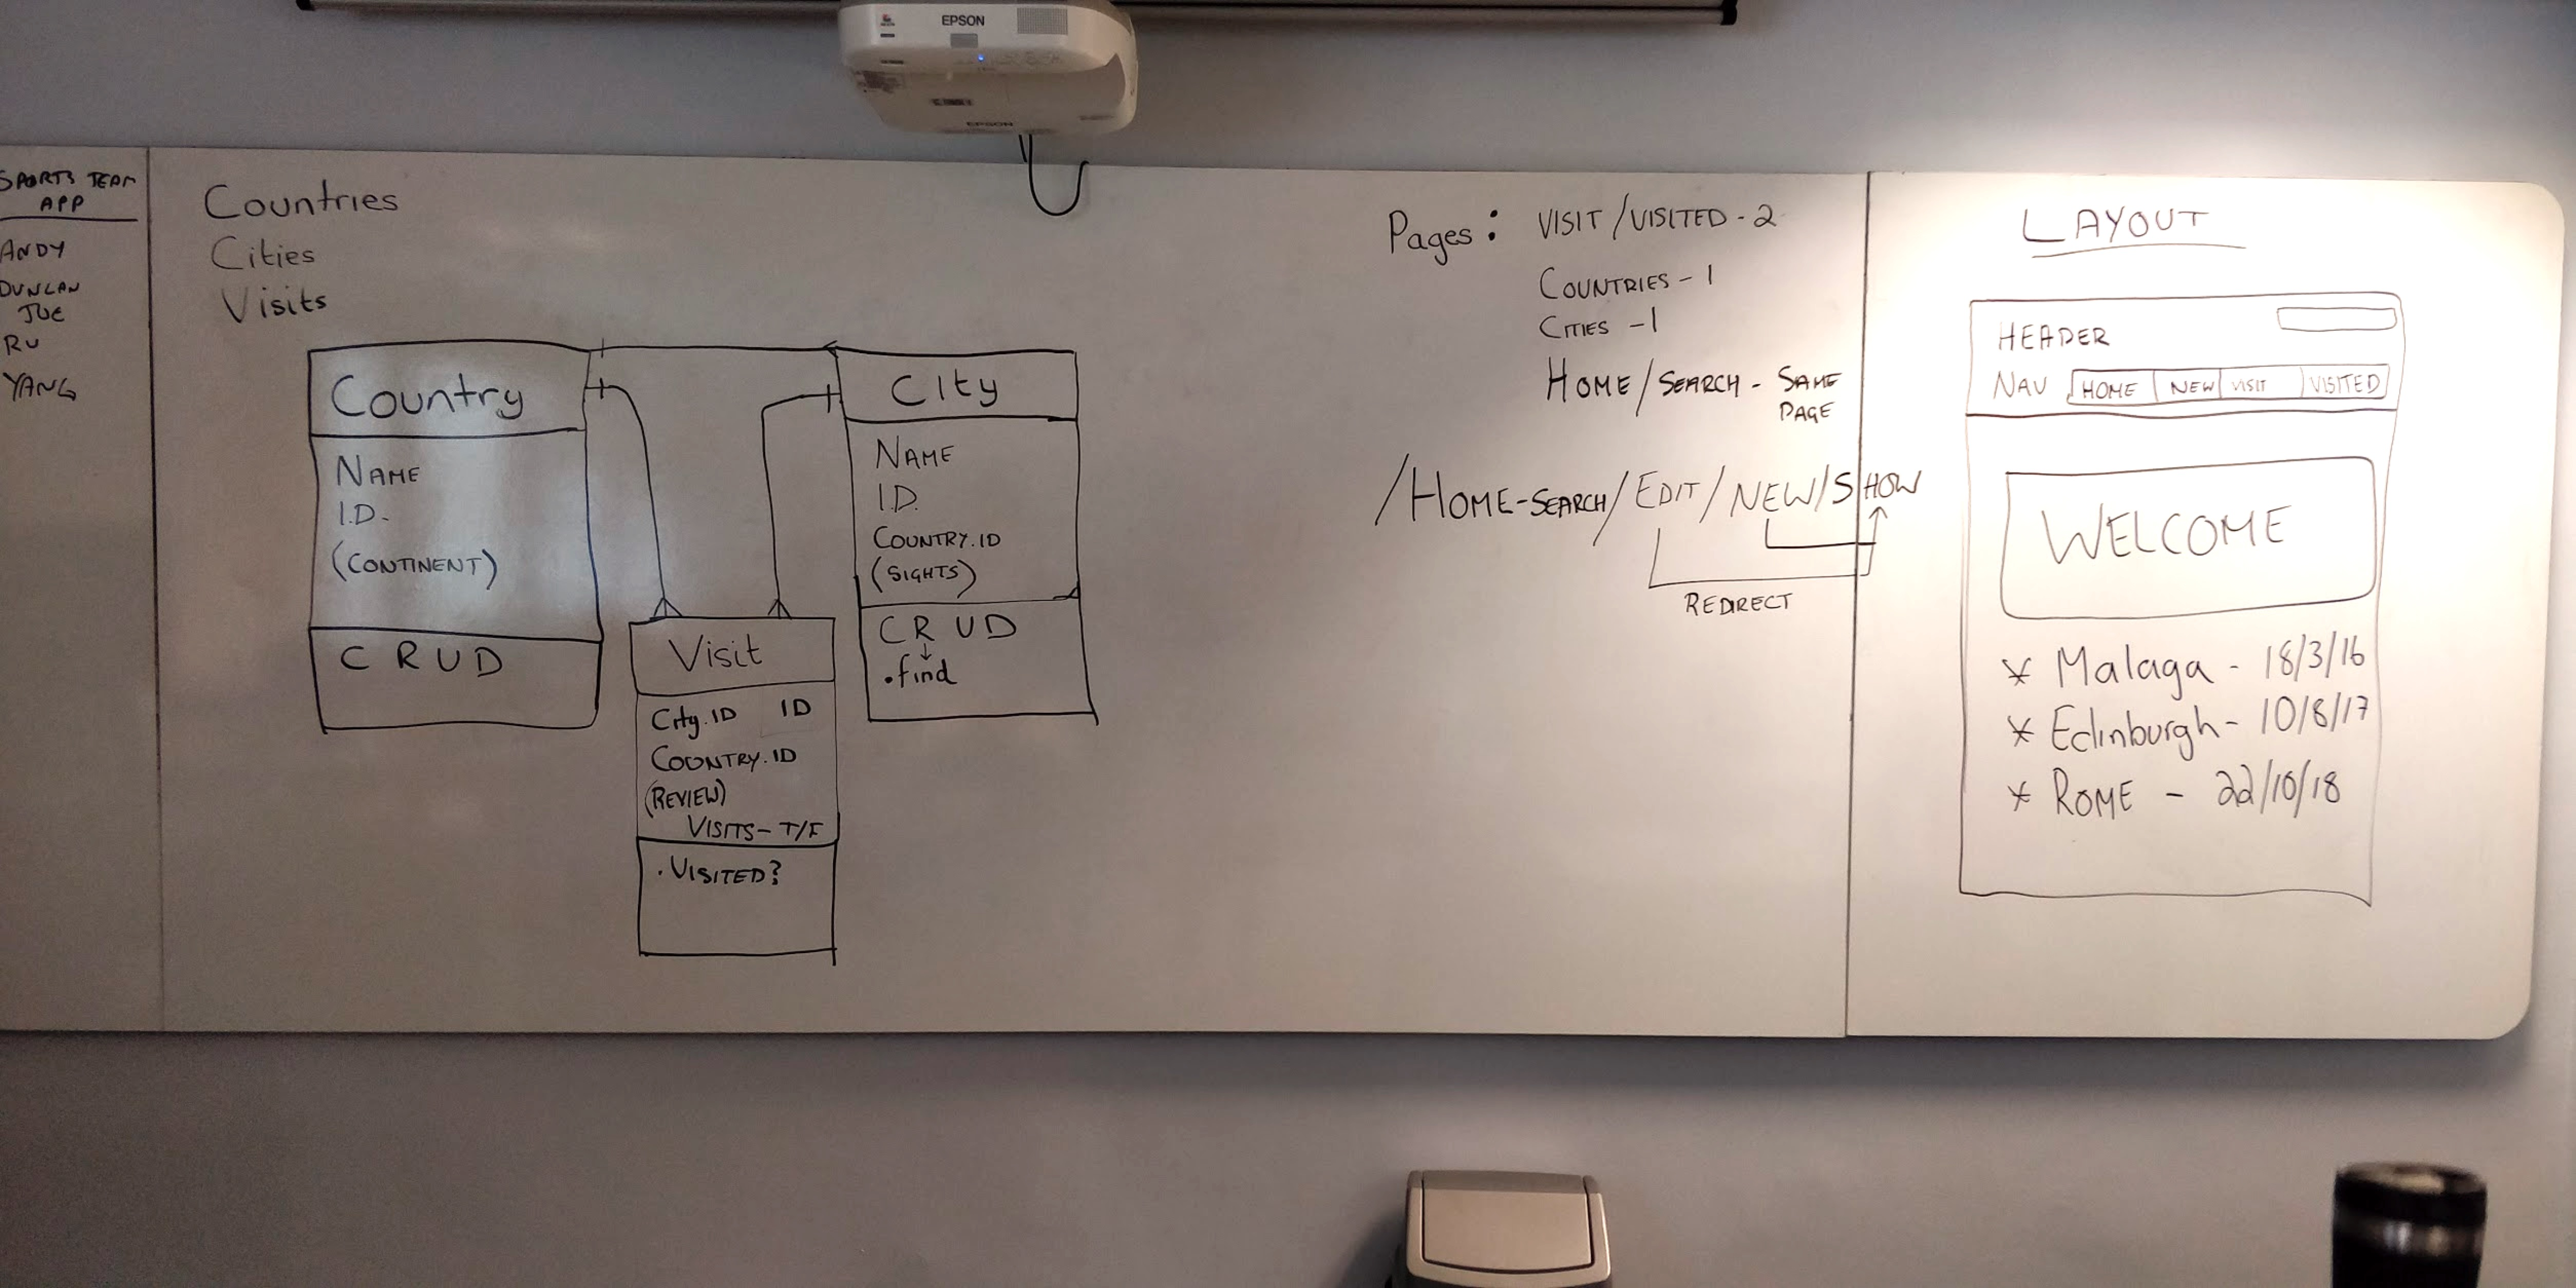 EPSON
EPSON
SPORTS TEAM
APP
ANDY
DUNCAN
JOE
RU
YANG
Countries
Cities
Visits
Country
NAME
I.D.
(CONTINENT)
C R U D
City
NAME
I.D.
COUNTRY.ID
(SIGHTS)
C R U D
.find
Visit
City.ID ID
COUNTRY.ID
(REVIEW)
VISITS - T/F
. VISITED?
Pages: VISIT / VISITED - 2
COUNTRIES - 1
CITIES - 1
HOME / SEARCH - SAME
PAGE
/HOME-SEARCH/EDIT/NEW/SHOW
REDIRECT
LAYOUT
HEADER
NAV HOME NEW VISIT VISITED
WELCOME
* Malaga - 18/3/16
* Edinburgh - 10/8/17
* ROME - 22/10/18